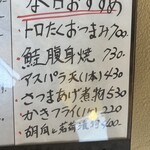 本日おすすめ
トロたくおつまみ700.
鮭腹身焼 730.
アスパラ天(1本)430
さつまあげ煮物530
かきフライ(1ヶ)220
胡瓜と若布